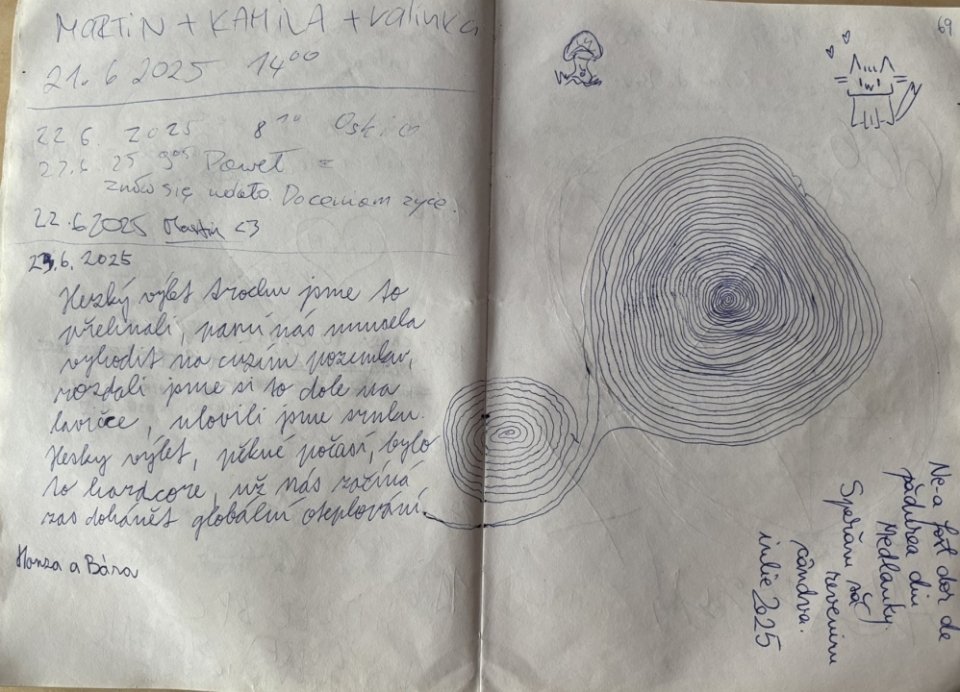 MARTIN + KAMILA + Kalinka
21. 6 2025 14⁰⁰
22 6. 2025 8¹⁰
22.6. 25 9⁰⁵ Paweł
znów się udało. Doceniam życie.
22.6 2025 Martin <3
6. 2025
Hezký výlet trochu jsme to
přehnali, paní nás musela
vyhodit na cizím pozemku,
rozdali jsme si to dole na
lavičce, ulovili jsme srnku.
Hezky výlet, pěkné počasí, bylo
to hardcore, už nás začíná
zas dohánět globální oteplování.
Honza a Bára
69
Ne-a fost dor de
pădurea din
Medlanky.
Sperăm să
revenim
cândva.
iulie 2025